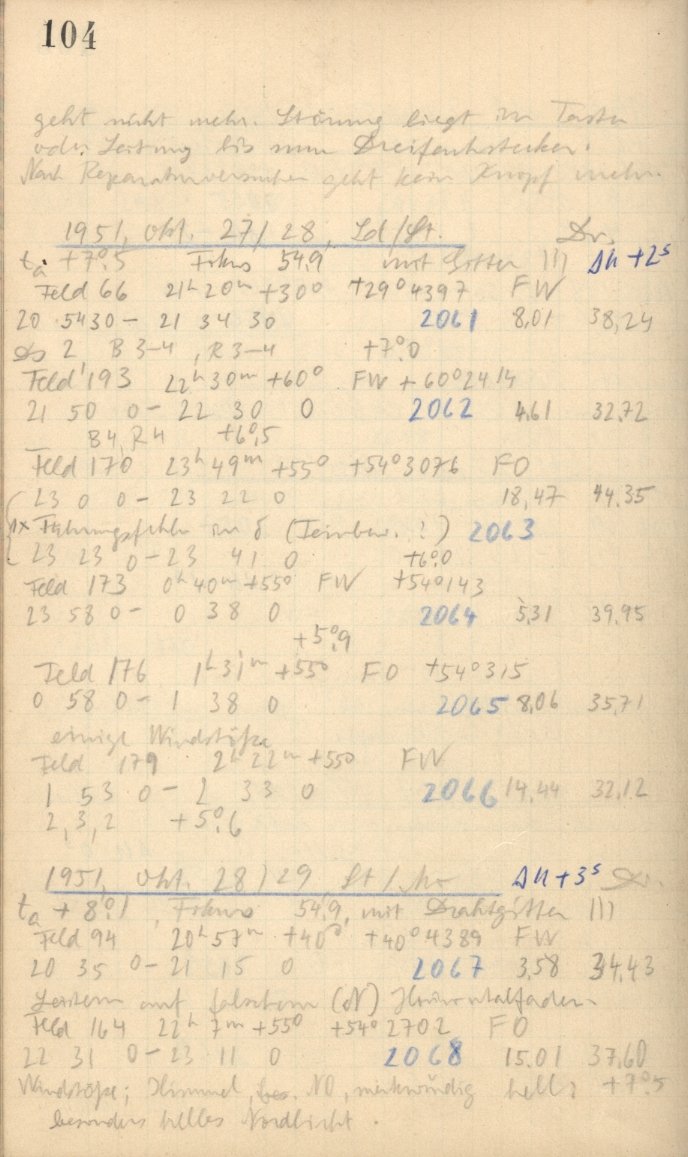 104
geht nicht mehr. Störung liegt im Taster
oder Leitung bis zum Dreifachstecker.
Nach Reparaturversuchen geht kein Knopf mehr.
1951, Okt. 27/28, Ld/St. Dr.
ta +7°,5 Fokus 54,9 mit Gitter ||| Δu +2s
Feld 66 21h 20m +30° +29°4397 FW
20 54 30 - 21 34 30 2061 8,01 38,24
2 B 3-4, R 3-4 +7°,0
Feld 193 22h 30m +60° FW +60°2414
21 50 0 - 22 30 0 2062 4,61 32,72
B4, R4 +6°,5
Feld 170 23h 49m +55° +54°3076 FO
23 0 0 - 23 22 0 18,47 44,35
1x Führungsfehler in δ 2063
23 23 0 - 23 41 0 +6°,0
Feld 173 0h 40m +55° FW +54°143
23 58 0 - 0 38 0 2064 5,31 39,95
+5°,9
Feld 176 1h 31m +55° FO +54°315
0 58 0 - 1 38 0 2065 8,06 35,71
einige Windstöße
Feld 179 2h 22m +55° FW
1 53 0 - 2 33 0 2066 14,44 32,12
2, 3, 2 +5°,6
1951, Okt. 28/29 St/ Δu +3s Dr.
ta +8°,1, Fokus 54,9, mit Drahtgitter |||
Feld 94 20h 57m +40° +40°4389 FW
20 35 0 - 21 15 0 2067 3,58 34,43
auf falschem (N) Horizontalfaden.
Feld 164 22h 7m +55° +54°2702 FO
22 31 0 - 23 11 0 2068 15,01 37,60
Windstöße; Himmel, bes. NO, merkwürdig hell; +7°,5
besonders helles Nordlicht.